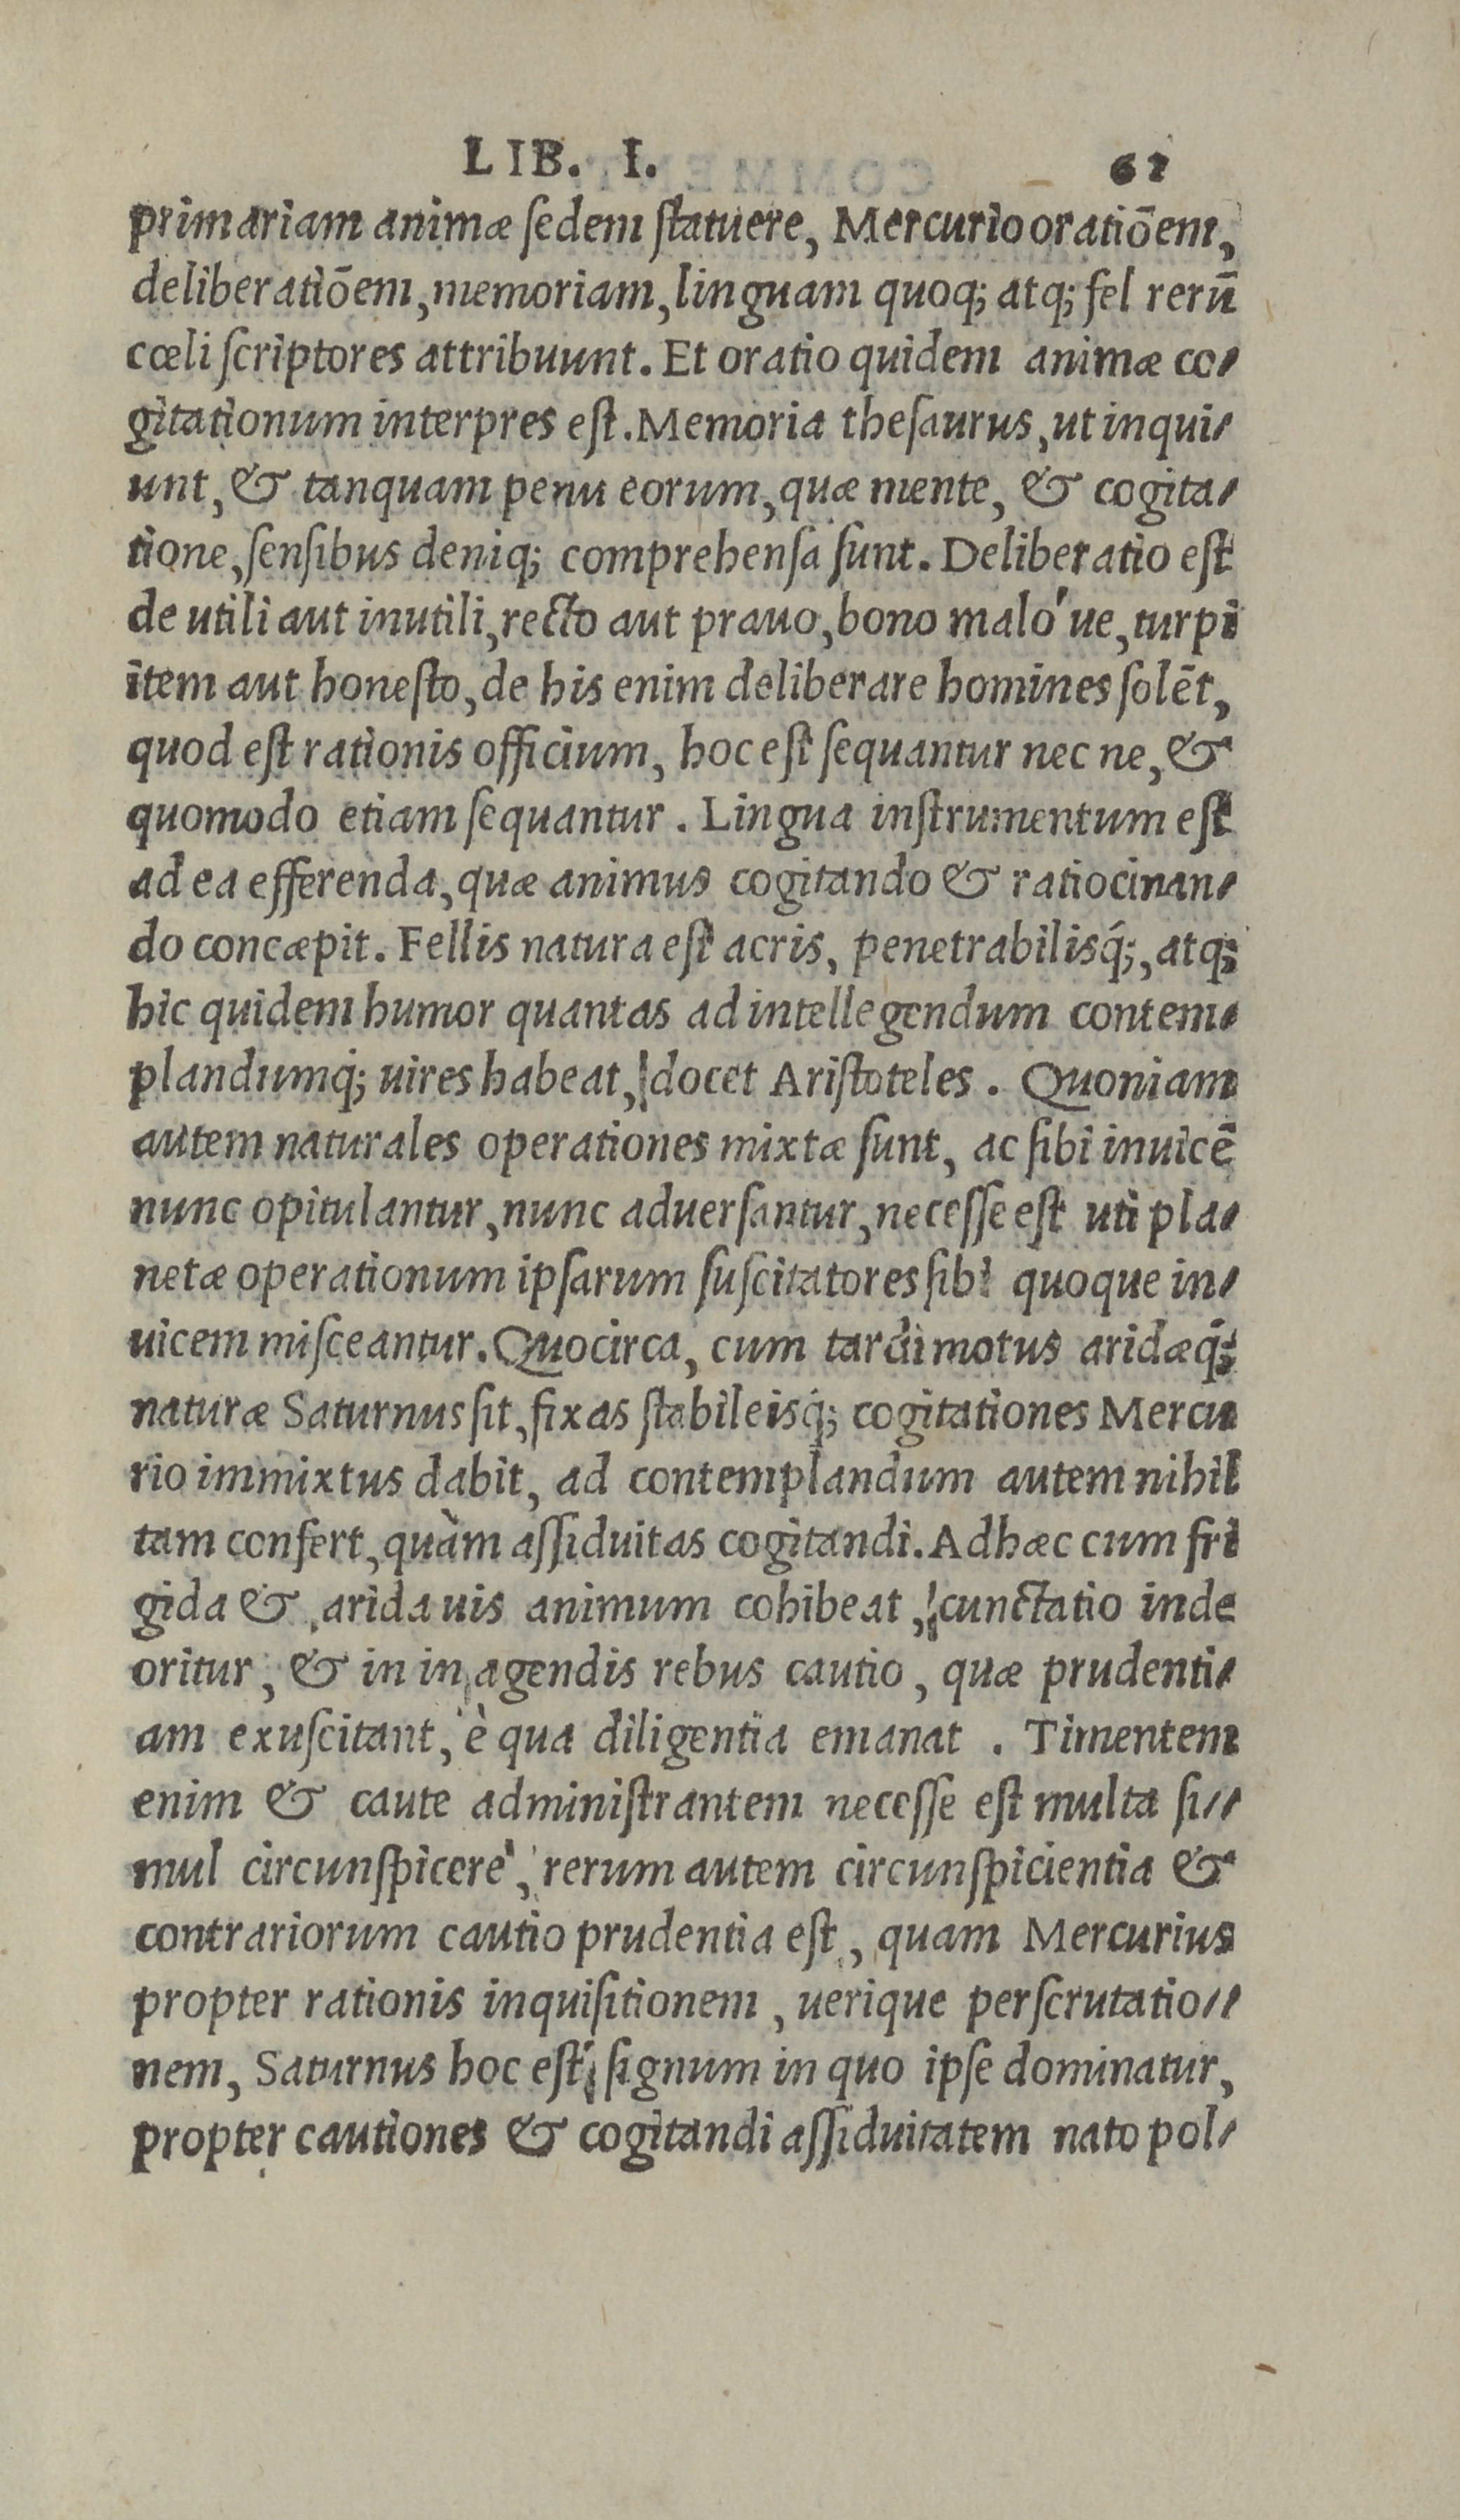 LIB. I. 61
primariam animæ ſedem ſtatuere, Mercurio oratiōem,
deliberatiōem, memoriam, linguam quoq; atq; fel rerū
cœli ſcriptores attribuunt. Et oratio quidem animæ co-
gitationum interpres eſt. Memoria theſaurus, ut inqui-
unt, & tanquam penu eorum, quæ mente, & cogita-
tione, ſenſibus deniq; comprehenſa ſunt. Deliberatio eſt
de utili aut inutili, recto aut prauo, bono malo´ue, turpi
item aut honeſto, de his enim deliberare homines ſolēt,
quod eſt rationis officium, hoc eſt ſequantur nec ne, &
quomodo etiam ſequantur. Lingua inſtrumentum eſt
ad ea efferenda, quæ animus cogitando & ratiocinan-
do concæpit. Fellis natura eſt acris, penetrabilisq́;, atq;
hic quidem humor quantas ad intellegendum contem-
plandumq́; uires habeat, docet Ariſtoteles. Quoniam
autem naturales operationes mixtæ ſunt, ac ſibi inuicē
nunc opitulantur, nunc aduerſantur, neceſſe eſt uti pla-
netæ operationum ipſarum ſuſcitatores ſibi quoque in-
uicem miſceantur. Quocirca, cum tardi motus aridæq́;
naturæ Saturnus ſit, fixas ſtabileisq́; cogitationes Mercu
rio immixtus dabit, ad contemplandum autem nihil
tam confert, quàm aſſiduitas cogitandi. Adhæc cum fri
gida & arida uis animum cohibeat, cunctatio inde
oritur, & in in agendis rebus cautio, quæ prudenti-
am exuſcitant, è qua diligentia emanat. Timentem
enim & caute adminiſtrantem neceſſe eſt multa ſi-
mul circunſpicere, rerum autem circunſpicientia &
contrariorum cautio prudentia eſt, quam Mercurius
propter rationis inquiſitionem, uerique perſcrutatio-
nem, Saturnus hoc eſt ſignum in quo ipſe dominatur,
propter cautiones & cogitandi aſſiduitatem nato pol-